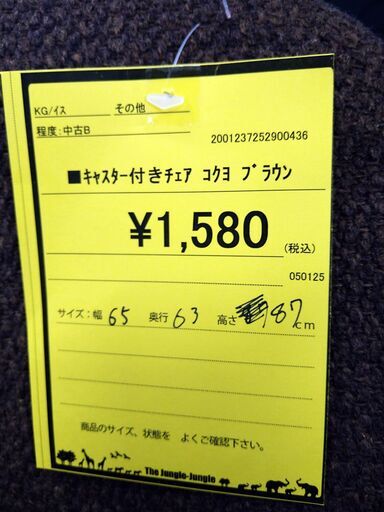 KG/ｲｽ その他
程度：中古B
2001237252900436
■ｷｬｽﾀｰ付きﾁｪｱ ｺｸﾖ ﾌﾞﾗｳﾝ
¥1,580
(税込)
050125
サイズ：幅 65 奥行 63 高さ 87cm
商品のサイズ、状態を よくご確認下さい。
The Jungle-Jungle